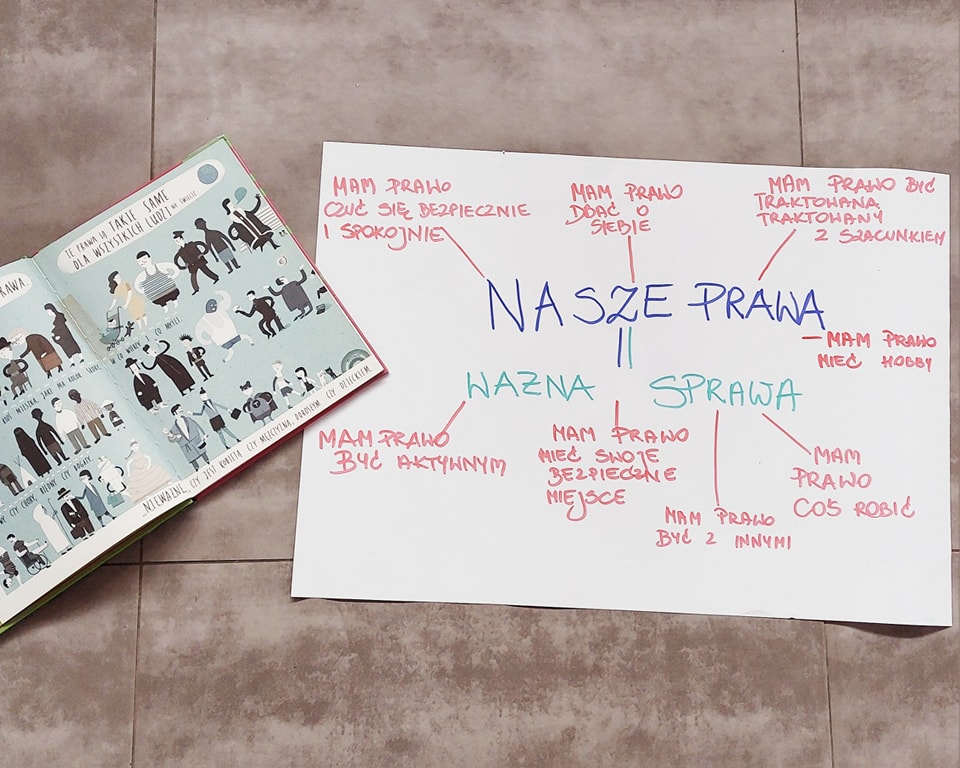 PRAWA.
TE PRAWA SĄ TAKIE SAME
DLA WSZYSTKICH LUDZI NA ŚWIECIE.
W CO WIERZY I CO MYŚLI.
MIESZKA, JAKI MA KOLOR SKÓRY,
CZY CHORY, BIEDNY CZY BOGATY.
...NIEWAŻNE, CZY JEST KOBIETĄ CZY MĘŻCZYZNĄ, DOROSŁYM CZY DZIECKIEM.
MAM PRAWO
CZUĆ SIĘ BEZPIECZNIE
I SPOKOJNIE
MAM PRAWO
DBAĆ O
SIEBIE
MAM PRAWO BYĆ
TRAKTOWANA
TRAKTOWANY
Z SZACUNKIEM
NASZE PRAWA
=
WAZNA SPRAWA
MAM PRAWO
MIEĆ HOBBY
MAM PRAWO
BYĆ AKTYWNYM
MAM PRAWO
MIEĆ SWOJE
BEZPIECZNE
MIEJSCE
MAM PRAWO
BYĆ Z INNYMI
MAM
PRAWO
COŚ ROBIĆ